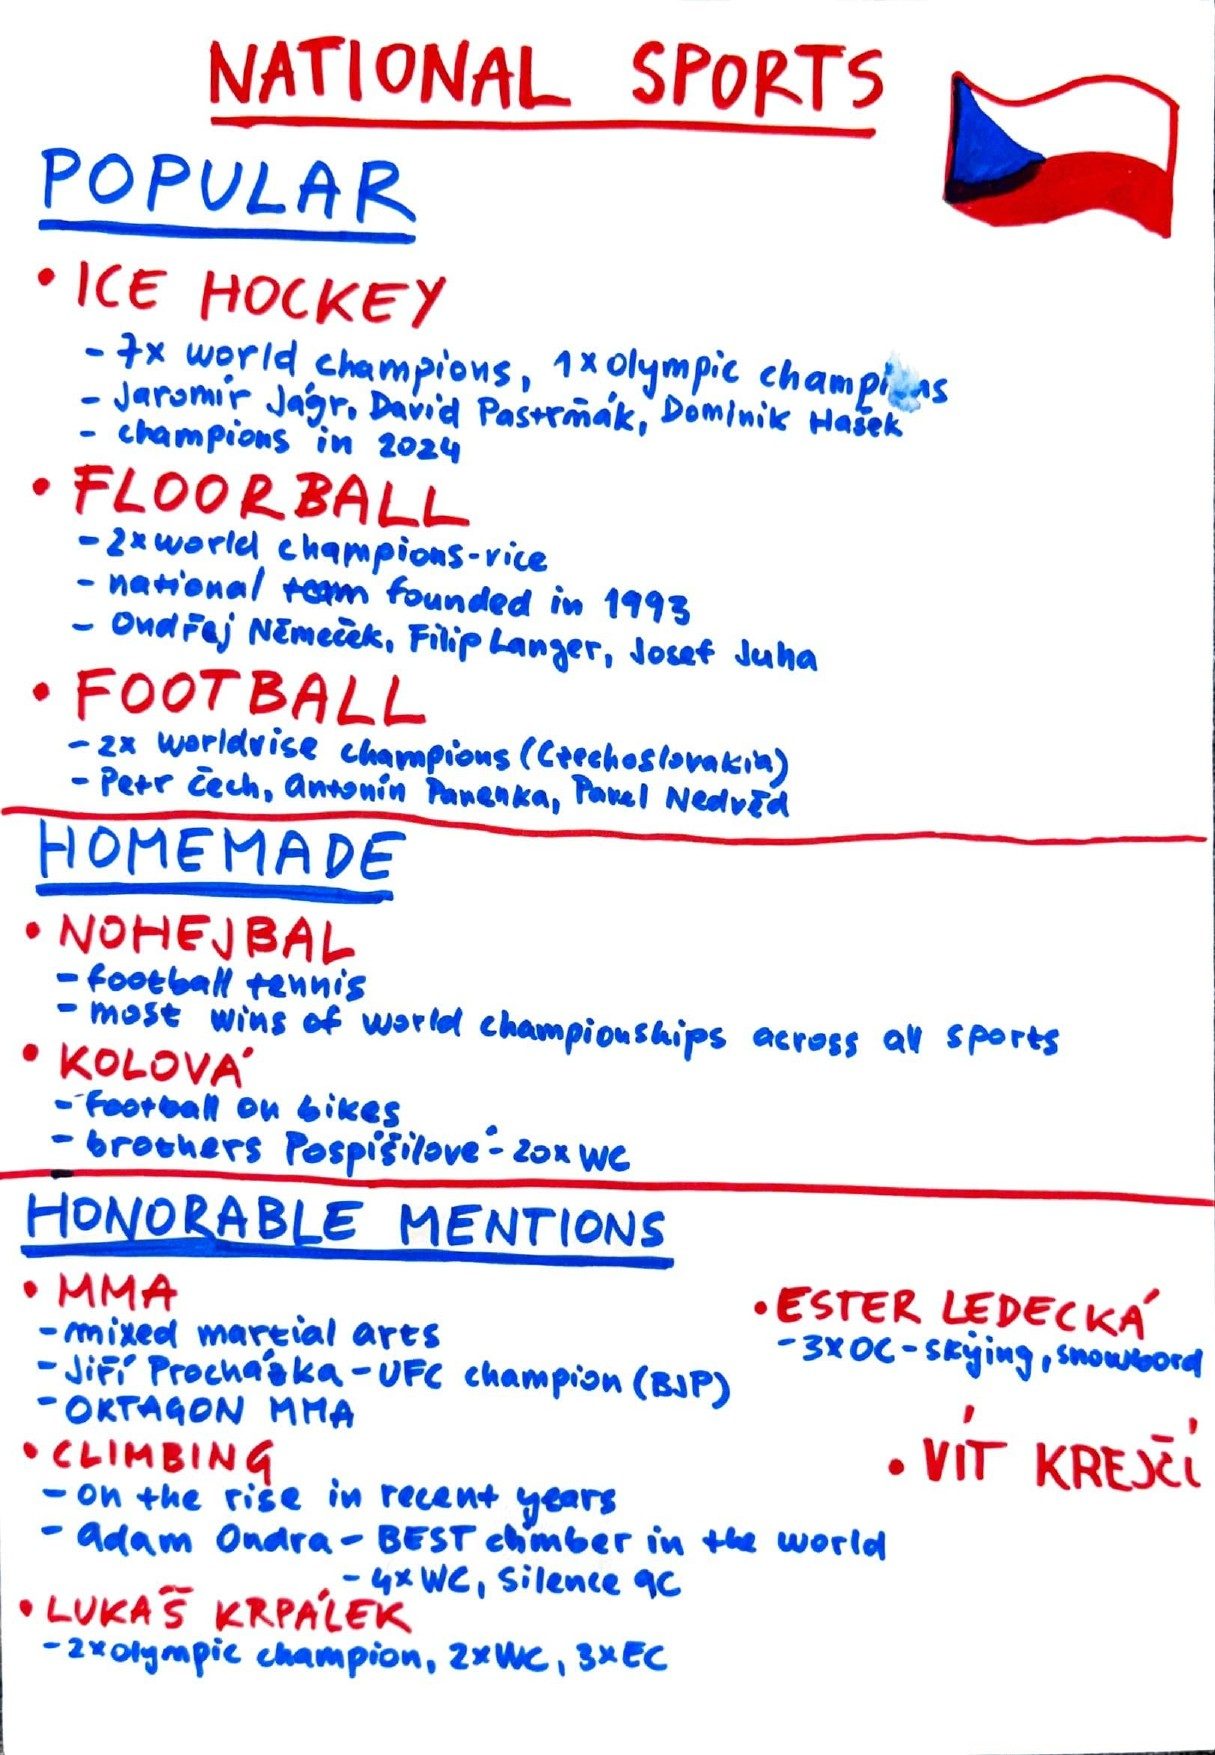 NATIONAL SPORTS
POPULAR
• ICE HOCKEY
- 7x world champions, 1x olympic champions
- Jaromír Jágr, David Pastrňák, Dominik Hašek
- champions in 2024
• FLOORBALL
- 2x world champions-vice
- national team founded in 1993
- Ondřej Němeček, Filip Langer, Josef Juha
• FOOTBALL
- 2x worldvise champions (Czechoslovakia)
- Petr Čech, Antonín Panenka, Pavel Nedvěd
HOMEMADE
• NOHEJBAL
- football tennis
- most wins of world championships across all sports
• KOLOVÁ
- football on bikes
- brothers Pospíšilové - 20x WC
HONORABLE MENTIONS
• MMA
- mixed martial arts
- Jiří Procházka - UFC champion (BJP)
- OKTAGON MMA
• CLIMBING
- on the rise in recent years
- Adam Ondra - BEST climber in the world
- 4x WC, Silence 9C
• LUKÁŠ KRPÁLEK
- 2x olympic champion, 2x WC, 3x EC
• ESTER LEDECKÁ
- 3x OC - skijing, snowbord
• VÍT KREJČÍ